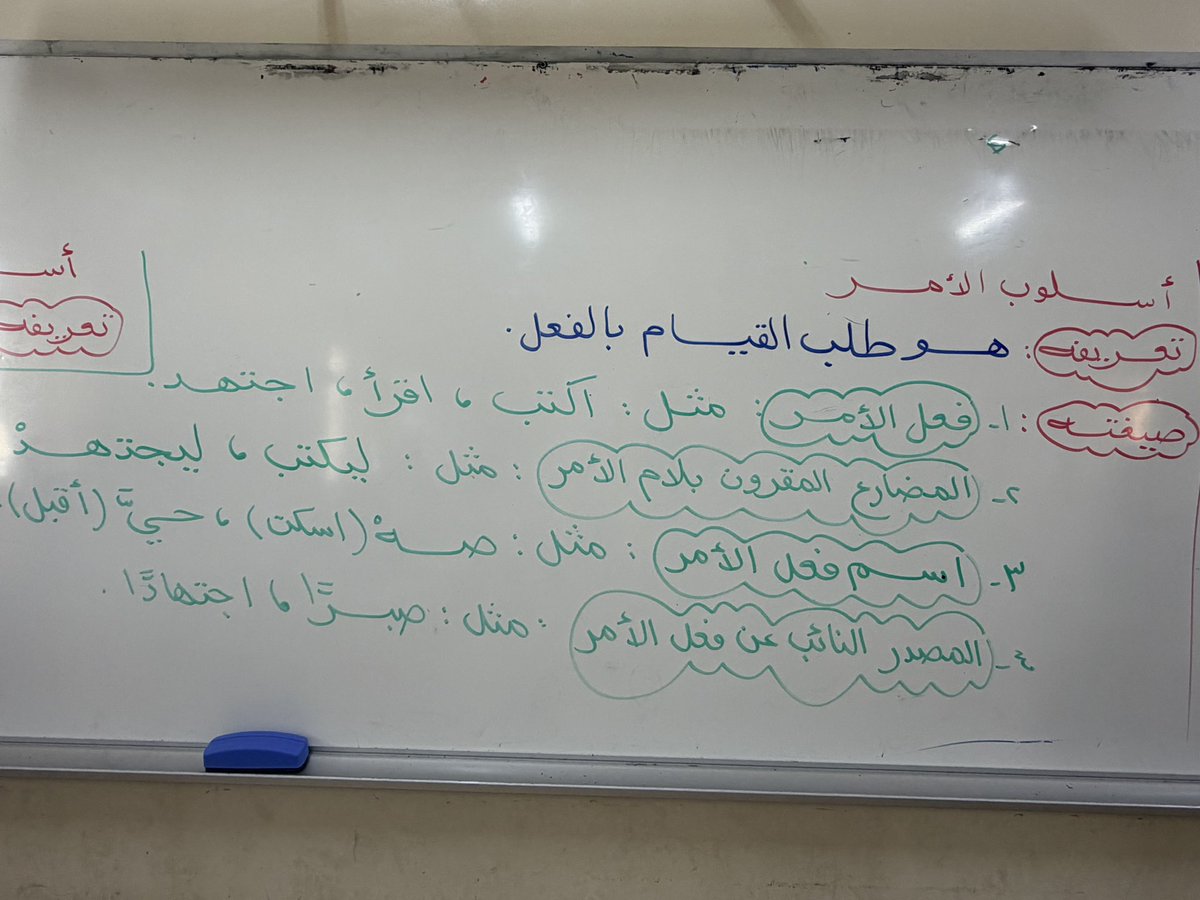 أسلوب الأمر
تعريفه: هو طلب القيام بالفعل.
صيغته: ١- فعل الأمر: مثل: اكتب، اقرأ، اجتهد.
٢- المضارع المقرون بلام الأمر: مثل: ليكتب، ليجتهدْ
٣- اسم فعل الأمر: مثل: صهْ (اسكت)، حيَّ (أقبل).
٤- المصدر النائب عن فعل الأمر: مثل: صبرًا، اجتهادًا.
تعريفه